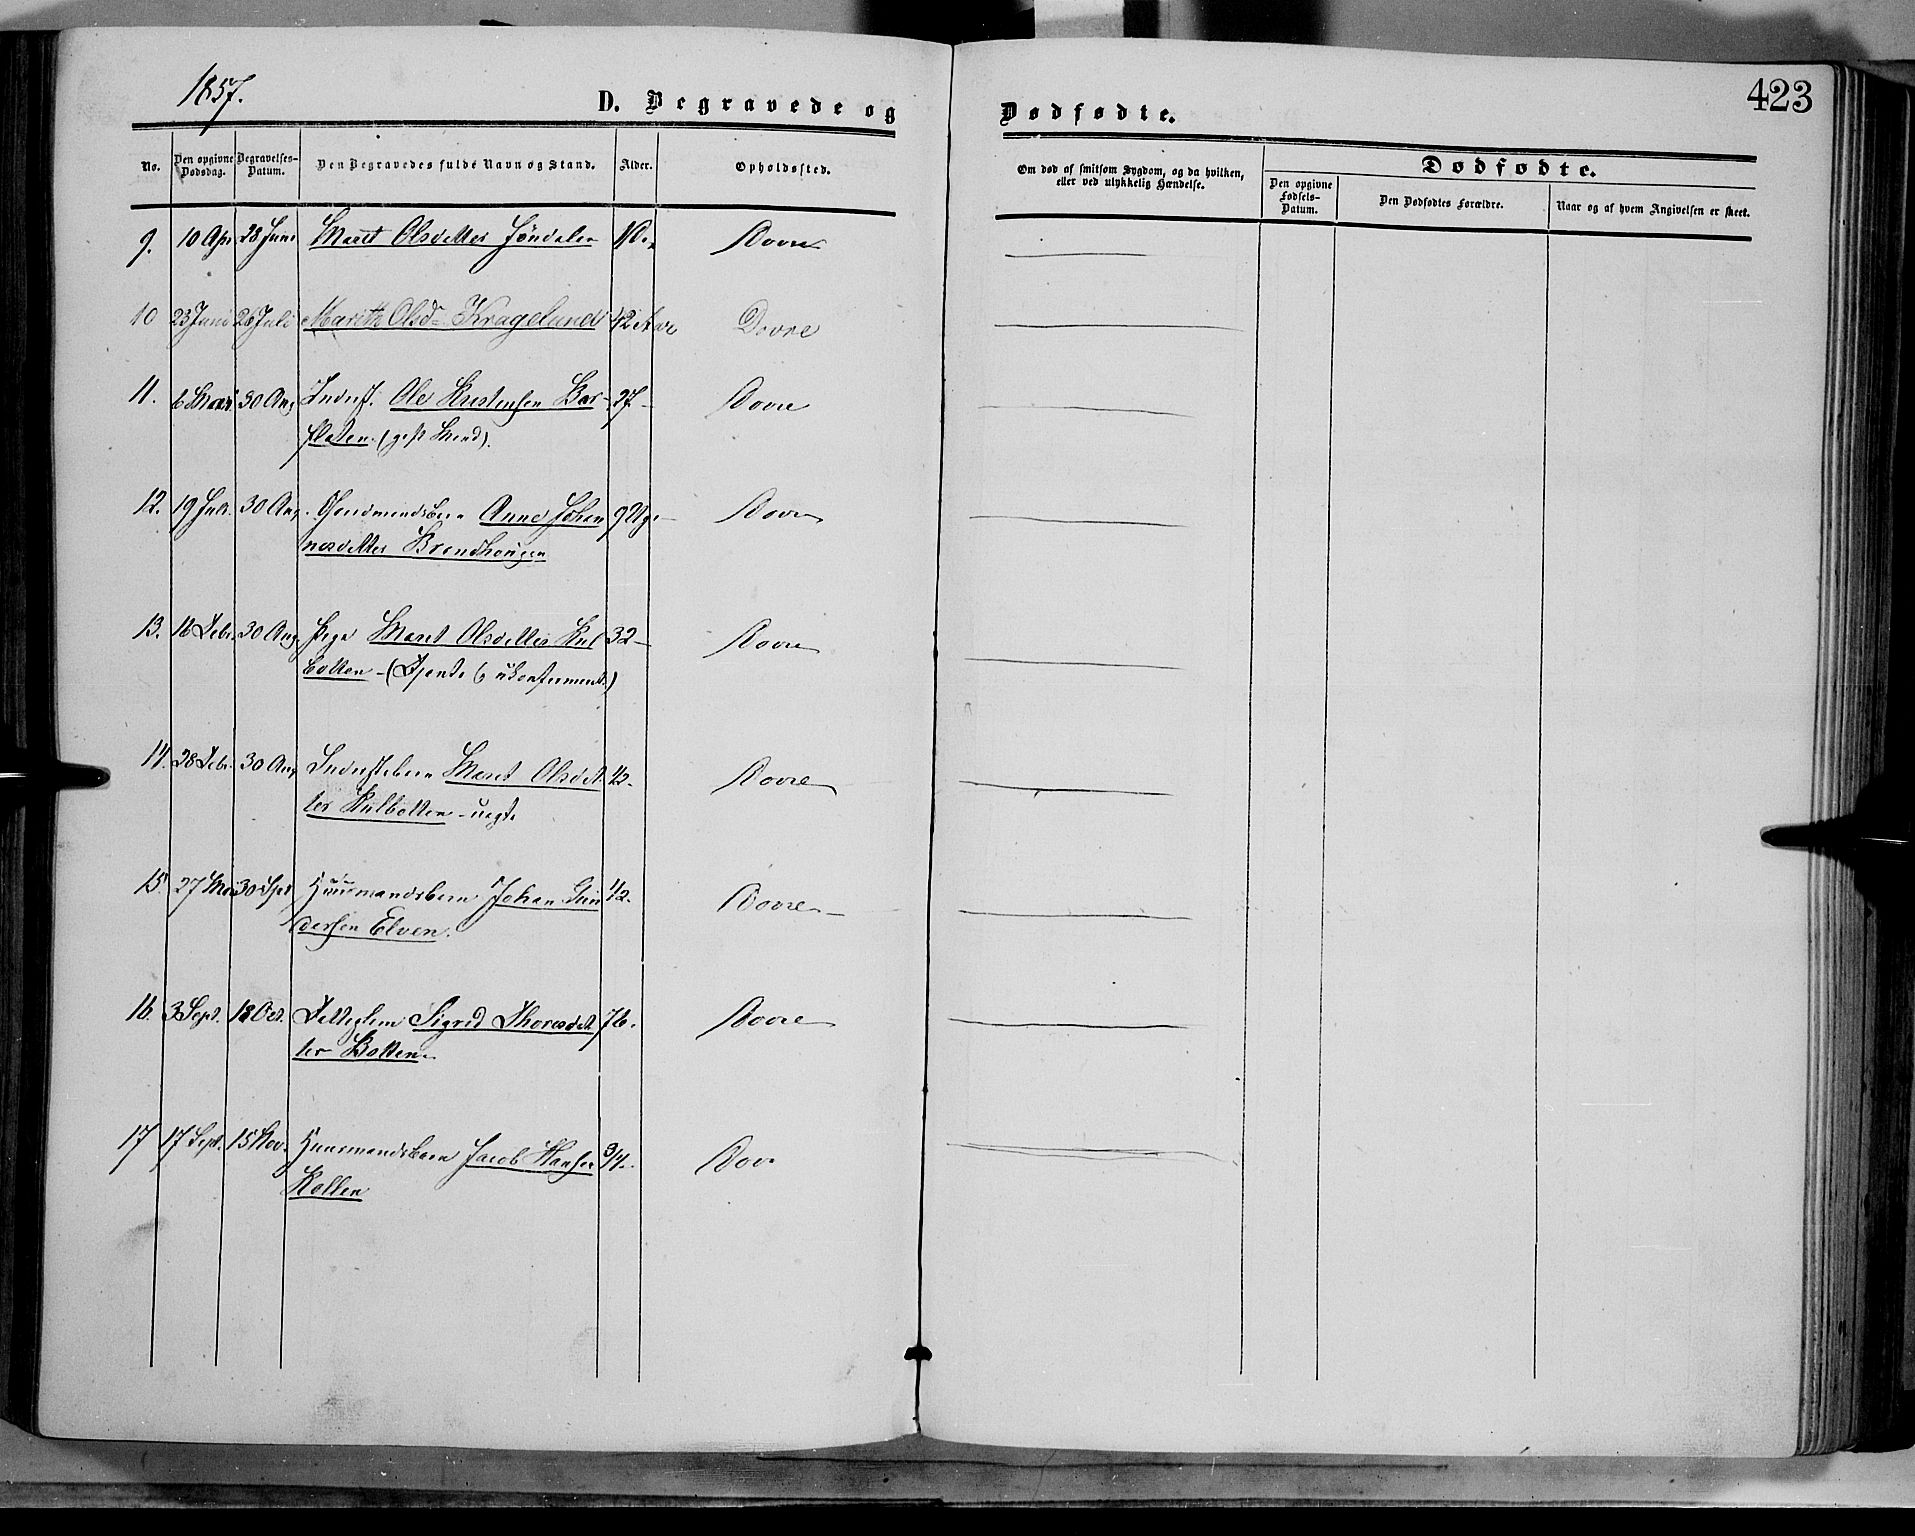 1857.
423
D. Begravede og Dødfødte.
No.
Den opgivne Dødsdag.
Begravelses-Datum.
Den Begravedes fulde Navn og Stand.
Alder.
Opholdssted.
Om død af smitsom Sygdom, og da hvilken,
eller ved ulykkelig Hændelse.
Dødfødte.
Den opgivne Fødsels-Datum.
Den Dødfødtes Forældre.
Naar og af hvem Angivelsen er skeet.
9. 10 Apr 28 Juni Marit Olsdatter Dovre
10 23 Juni 26 Juli Marith Olsd Kragelund 42 Aar Dovre
11. 6 30 Aug Inderst. Ole 27 - Dovre
flaten.
12. 19 30 Aug Anne Johan 9 Uge Dovre
nesdatter Brendhougen
13. 16 Febr. 30 Aug Pige Maret Olsdatter Kul 32 - Dovre
botten -
14. 28 Febr. 30 Aug Maret Olsdat 1/2 - Dovre
ter Kulbotten - uægte
15. 27 30 Spt Huusmandsbarn Johan Gun 1/2 - Dovre -
dersen Elven.
16. 3 Sept. 18 Oct. Sigrid Thoresdat 76. Dovre
ter Botten.
17 17 Sept. 15 Nov. Huusmandsbarn Jacob Hansen 3/4 - Dovr
Kollen